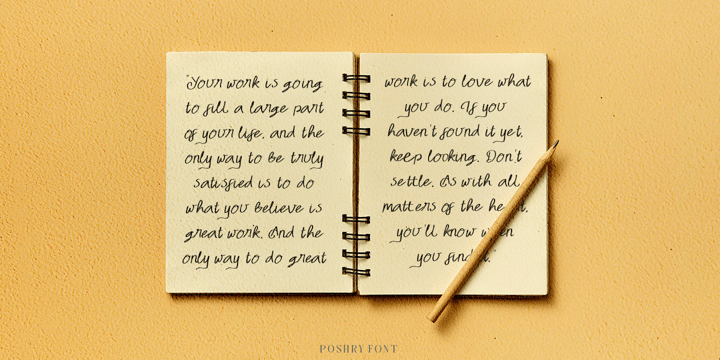 "Your work is going
to fill a large part
of your life, and the
only way to be truly
satisfied is to do
what you believe is
great work. And the
only way to do great
work is to love what
you do. If you
haven't found it yet,
keep looking. Don't
settle. As with all
matters of the
you'll know
you find
POSHRY FONT